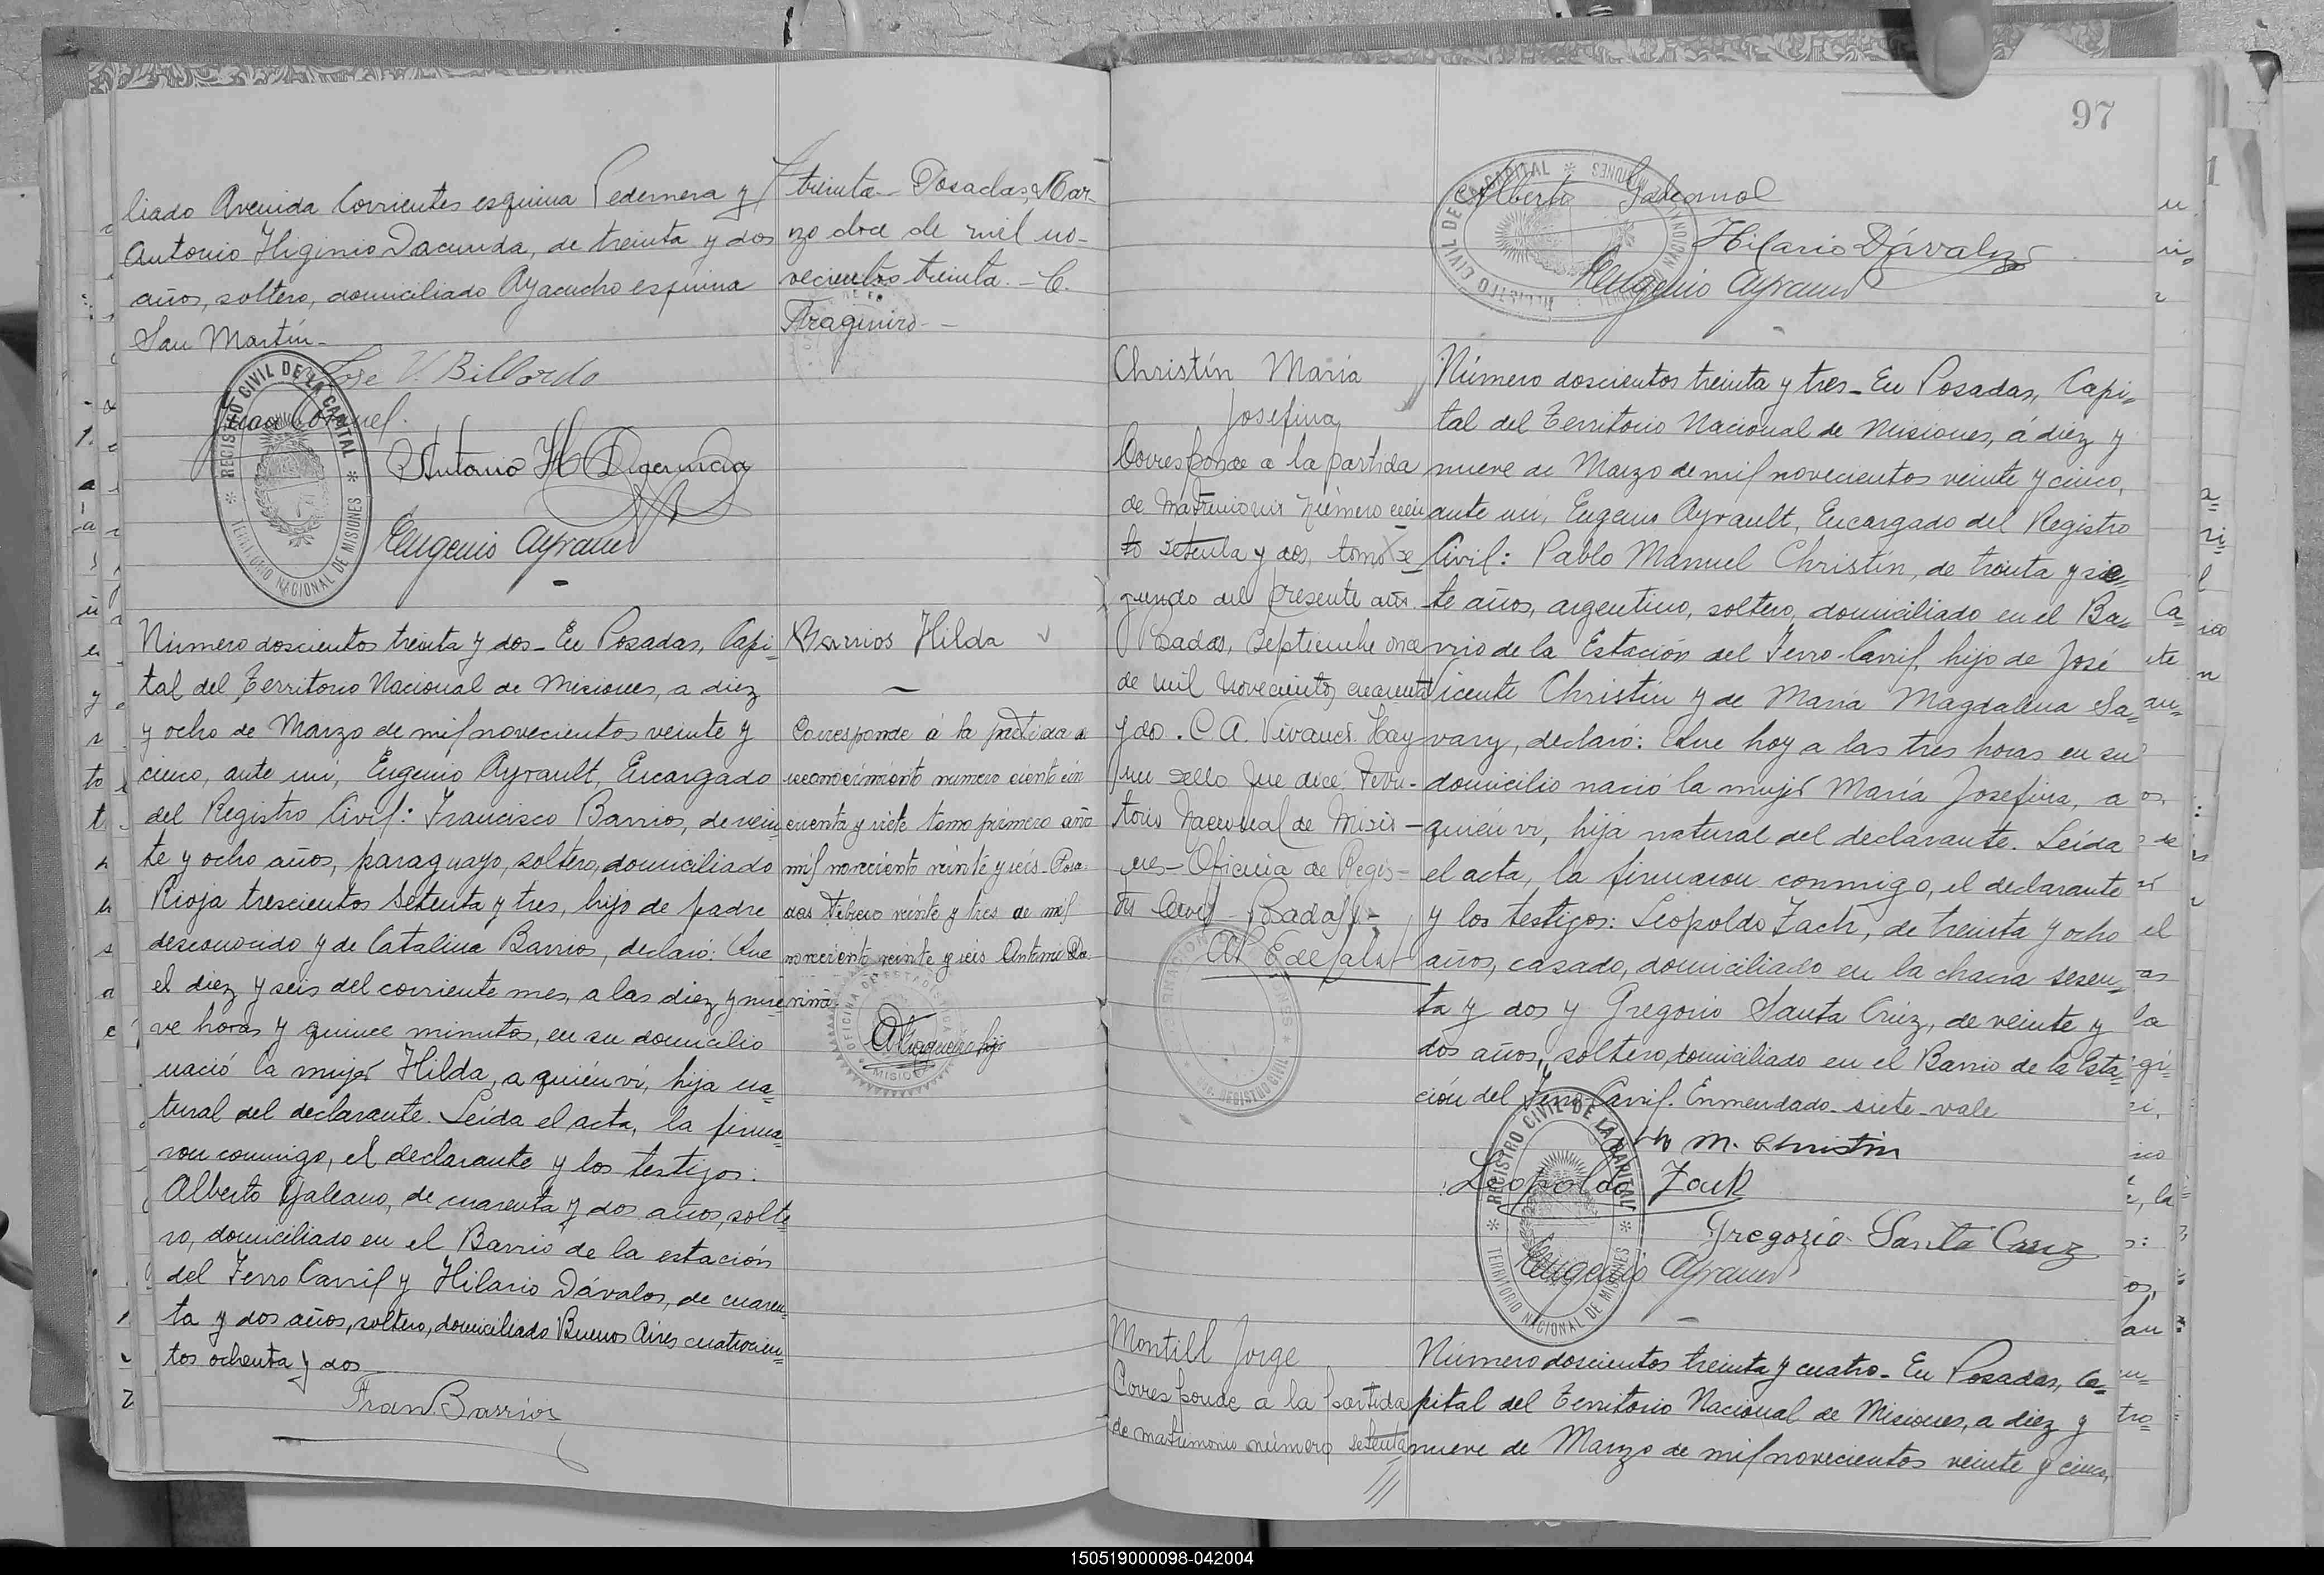 liado Avenida Corrientes esquina Pedernera y
Antonio Higinio Dacunda, de treinta y dos
años, soltero, domiciliado Ayacucho esquina
San Martín.
José V. Billordo
Juan Coronel.
Antonio H Dacunda
Eugenio Ayrault
REGISTRO CIVIL DE LA CAPITAL
TERRITORIO NACIONAL DE MISIONES
treinta - Posadas, Mar-
zo doce de mil no-
vecientos treinta. - C.
Número doscientos treinta y dos - En Posadas, Capi-
tal del Territorio Nacional de Misiones, a diez
y ocho de Marzo de mil novecientos veinte y
cinco, ante mí, Eugenio Ayrault, Encargado
del Registro Civil: Francisco Barrios, de vein
te y ocho años, paraguayo, soltero, domiciliado
Rioja trescientos setenta y tres, hijo de padre
desconocido y de Catalina Barrios, declaró: Que
el diez y seis del corriente mes, a las diez y nue
ve horas y quince minutos, en su domicilio
nació la mujer Hilda, a quién ví, hija na-
tural del declarante. Leída el acta, la firma-
ron conmigo, el declarante y los testigos:
Alberto Galeano, de cuarenta y dos años, solte-
ro, domiciliado en el Barrio de la estación
del Ferro Carril y Hilario Dávalos, de cuaren-
ta y dos años, soltero, domiciliado Buenos Aires cuatrocien-
tos ochenta y dos
Fran. Barrios
Barrios Hilda
Corresponde á la partida de
reconocimiento numero ciento cin
cuenta y siete tomo primero año
mil novecientos veinte y seis. Posa
das Febrero veinte y tres de mil
novecientos veinte y seis Antonio
97
Alberto Galeano
Hilario Dávalos
Eugenio Ayrault
REGISTRO CIVIL DE LA CAPITAL
Christín María
Josefina
Corresponde a la partida
de matrimonio número cien
to setenta y dos, tomo se
gundo del presente año.
Posadas, Septiembre once
de mil novecientos cuarenta
y dos. C. A. Vivanco. Hay
un sello que dice: Terri-
torio Nacional de Misio-
nes - Oficina de Regis-
tro Civil - Posadas. -
Número doscientos treinta y tres - En Posadas, Capi-
tal del Territorio Nacional de Misiones, á diez y
nueve de Marzo de mil novecientos veinte y cinco,
ante mí, Eugenio Ayrault, Encargado del Registro
Civil: Pablo Manuel Christín, de treinta y sie-
te años, argentino, soltero, domiciliado en el Ba-
rrio de la Estación del Ferro-Carril, hijo de José
Vicente Christín y de María Magdalena Sa-
vary, declaró: Que hoy a las tres horas en su
domicilio nació la mujer María Josefina, a
quién ví, hija natural del declarante. Leída
el acta, la firmaron conmigo, el declarante
y los testigos: Leopoldo Zach, de treinta y ocho
años, casado, domiciliado en la chacra sesen-
ta y dos y Gregorio Santa Cruz, de veinte y
dos años, soltero, domiciliado en el Barrio de la Esta-
ción del Ferro-Carril. Enmendado - siete - vale
M. Christin
Leopoldo Zach
Gregorio Santa Cruz
Eugenio Ayrault
REGISTRO CIVIL DE LA CAPITAL
TERRITORIO NACIONAL DE MISIONES
Montill Jorge
Corresponde a la partida
de matrimonio número setenta
Número doscientos treinta y cuatro - En Posadas, Ca-
pital del Territorio Nacional de Misiones, a diez y
nueve de Marzo de mil novecientos veinte y cinco,
150519000098-042004